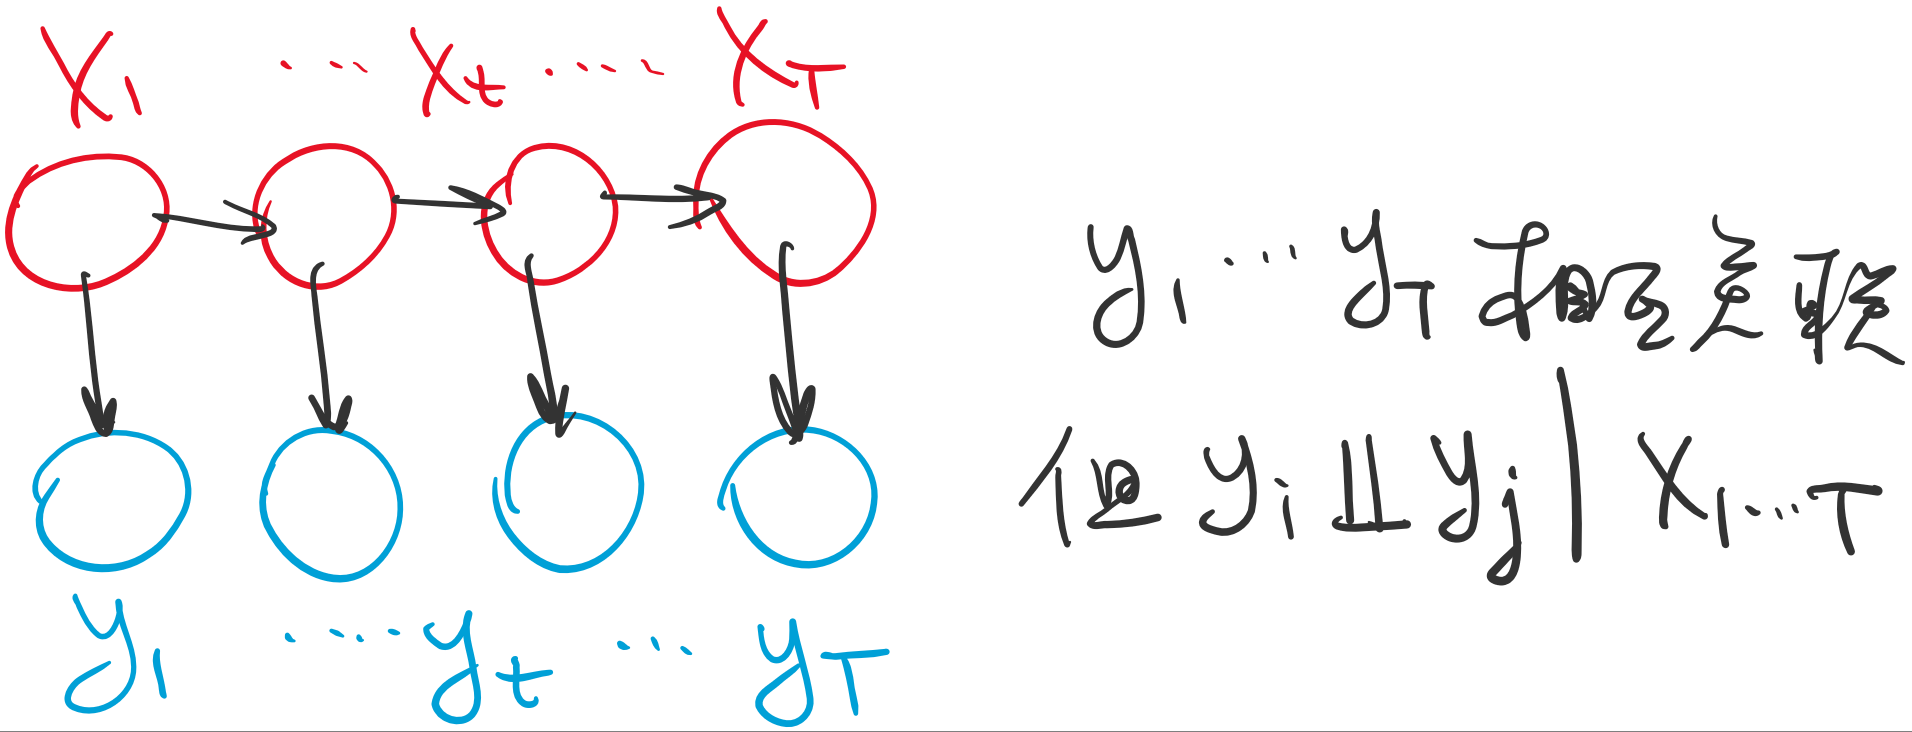 X₁ ····· Xₜ ····· X_T
y₁ ····· yₜ ··· y_T
y₁ ···· y_T 相互关联
但 yᵢ ⫫ yⱼ | X₁...T